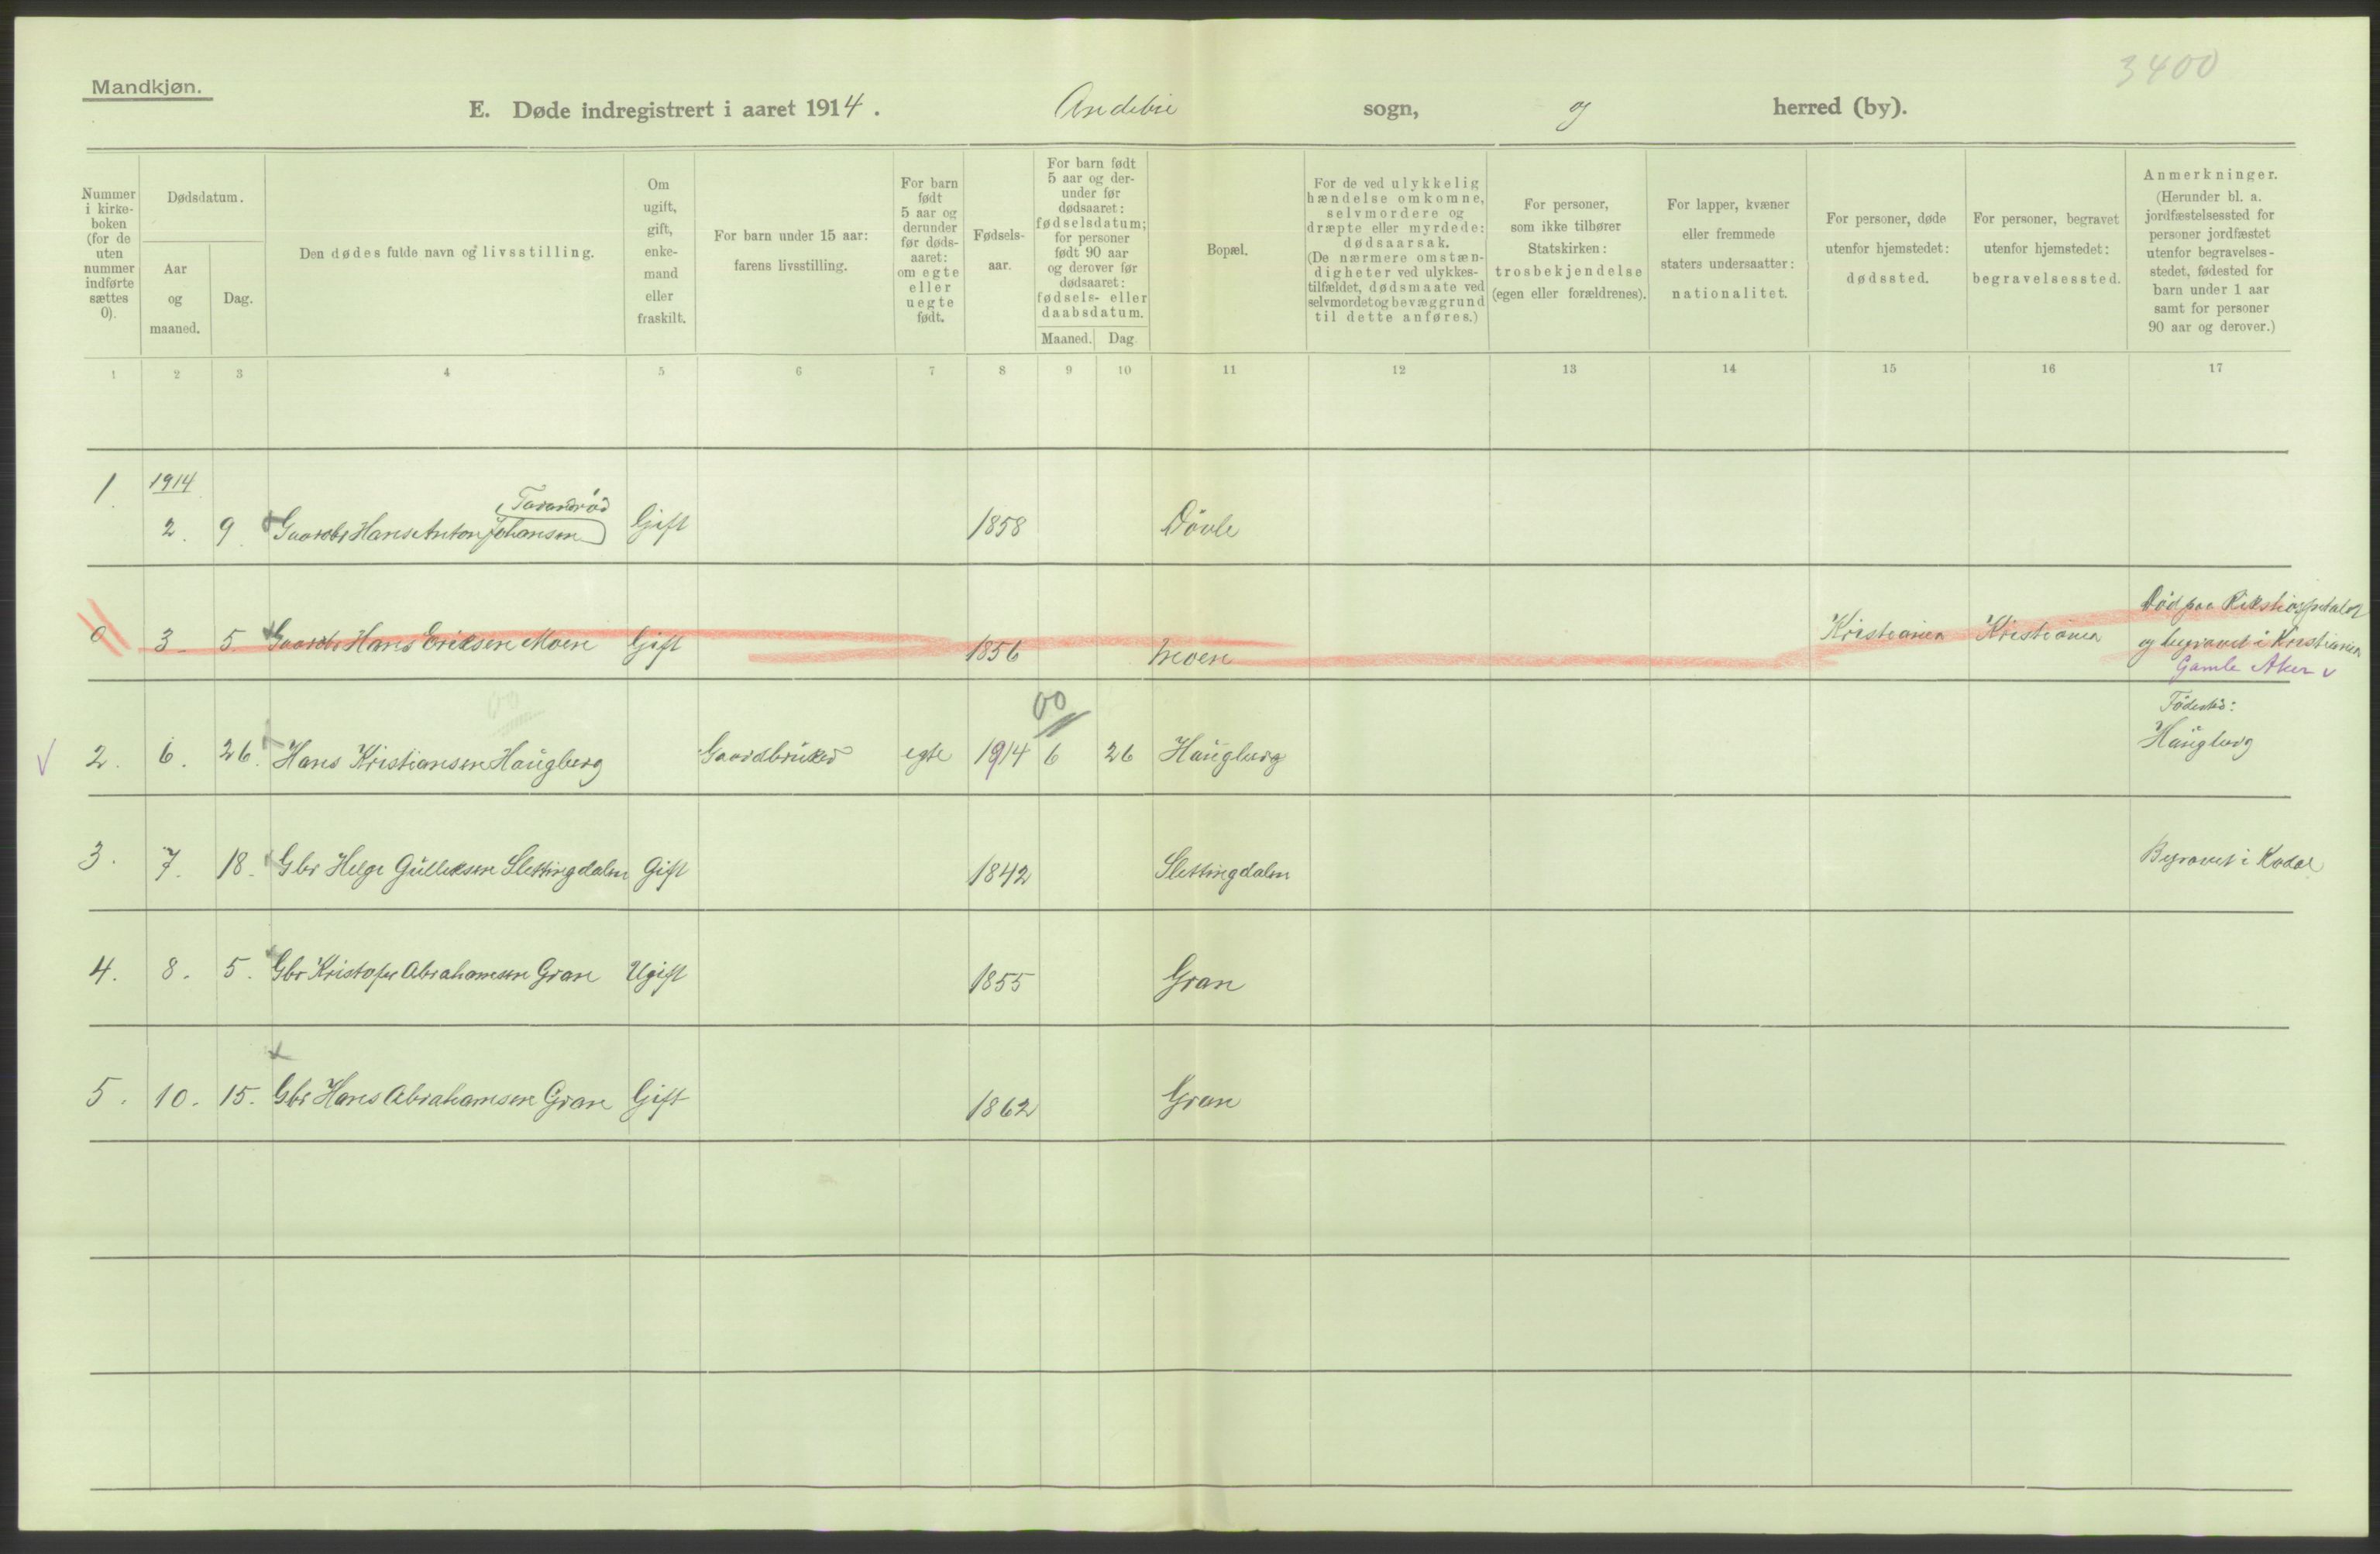 3400
Mandkjøn.
E. Døde indregistrert i aaret 1914.
Andebu sogn, og herred (by).
Nummer
i kirke-
boken
(for de
uten
nummer
indførte
sættes
0).
Dødsdatum.
Aar
og
maaned.
Dag.
Den dødes fulde navn og livsstilling.
Om
ugift,
gift,
enke-
mand
eller
fraskilt.
For barn under 15 aar:
farens livsstilling.
For barn
født
5 aar og
derunder
før døds-
aaret:
om egte
eller
uegte
født.
Fødsels-
aar.
For barn født
5 aar og der-
under før
dødsaaret:
fødselsdatum;
for personer
født 90 aar
og derover før
dødsaaret:
fødsels- eller
daabsdatum.
Maaned. Dag
Bopæl.
For de ved ulykkelig
hændelse omkomne,
selvmordere og
dræpte eller myrdede:
dødsaarsak.
(De nærmere omstæn-
digheter ved ulykkes-
tilfældet, dødsmaate ved
selvmordet og bevæggrund
til dette anføres.)
For personer,
som ikke tilhører
Statskirken:
trosbekjendelse
(egen eller forældrenes).
For lapper, kvæner
eller fremmede
staters undersaatter:
nationalitet.
For personer, døde
utenfor hjemstedet:
dødssted.
For personer, begravet
utenfor hjemstedet:
begravelsessted.
Anmerkninger.
(Herunder bl. a.
jordfæstelsessted for
personer jordfæstet
utenfor begravelses-
stedet, fødested for
barn under 1 aar
samt for personer
90 aar og derover.)
1 2 3 4 5 6 7 8 9 10 11 12 13 14 15 16 17
1914
1. 2. 9. Gaardbr Hans Anton Johansen Gift 1858
0 3 5 Gaardbr Hans Eriksen Moen Gift 1856 Moen Kristiania Kristiania
Død paa Rikshospitalet
og begravet i Kristiania
Gamle Aker v
00
2. 6. 26. Hans Kristiansen Haugberg Gaardbruker egte 1914 6 26 Haugberg
Fødested:
Haugberg
3. 7. 18. Gbr Helge Gulleksen Slettingdalen Gift 1842 Slettingdalen Begravet i Kodal
4. 8. 5. Gbr Kristofer Abrahamsen Gran Ugift 1855 Gran
5. 10. 15. Gbr Hans Abrahamsen Gran Gift 1862 Gran